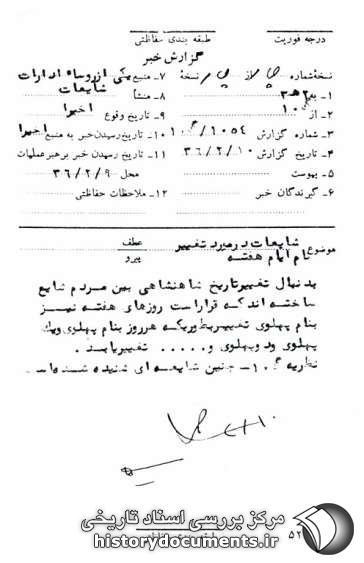 درجه فوریت طبقه بندی حفاظتی
گزارش خبر
نسخه شماره از نسخه ۷- منبع یکی از روساء ادارات
۱- به ۳ هـ ۸- منشا شایعات
۲- از ۱۰ ۹- تاریخ وقوع اخیرا
۳- شماره گزارش ۱۰۵۴/ ۱۰- تاریخ رسیدن خبر به منبع اخیرا
۴- تاریخ گزارش ۳۶/۲/۱۰ ۱۱- تاریخ رسیدن خبر برهبر عملیات
۵- پیوست محل ۳۶/۲/۹
۶- گیرندگان خبر ۱۲- ملاحظات حفاظتی
موضوع شایعات در مورد تغییر عطف
نام ایام هفته پیرو
بدنبال تغییر تاریخ شاهنشاهی بین مردم شایع
ساخته اند که قرار است روزهای هفته نیز
بنام پهلوی تغییر بطوریکه هرروز بنام پهلوی ویک
پهلوی ودوپهلوی و..... تغییر یابد.
نظریه ۱۰- چنین شایعه ای شنیده شده است.
مرکز بررسی اسناد تاریخی
historydocuments.ir